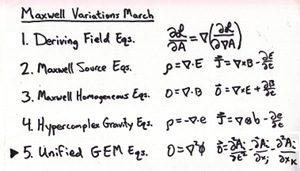 Maxwell Variations March
1. Deriving Field Eqs. ∂ℒ/∂A = ∇(∂ℒ/∂∇A)
2. Maxwell Source Eqs. ρ=∇·E J⃗=∇×B-∂E/∂t
3. Maxwell Homogeneous Eqs. 0=∇·B 0⃗=∇×E+∂B/∂t
4. Hypercomplex Gravity Eqs. ρ=-∇·e J⃗=∇⊗b-∂e/∂t
▶ 5. Unified GEM Eqs. 0=∇²φ 0⃗=∂²Aᵢ/∂t²-∂²Aᵢ/∂xⱼ-∂²Aᵢ/∂xₖ